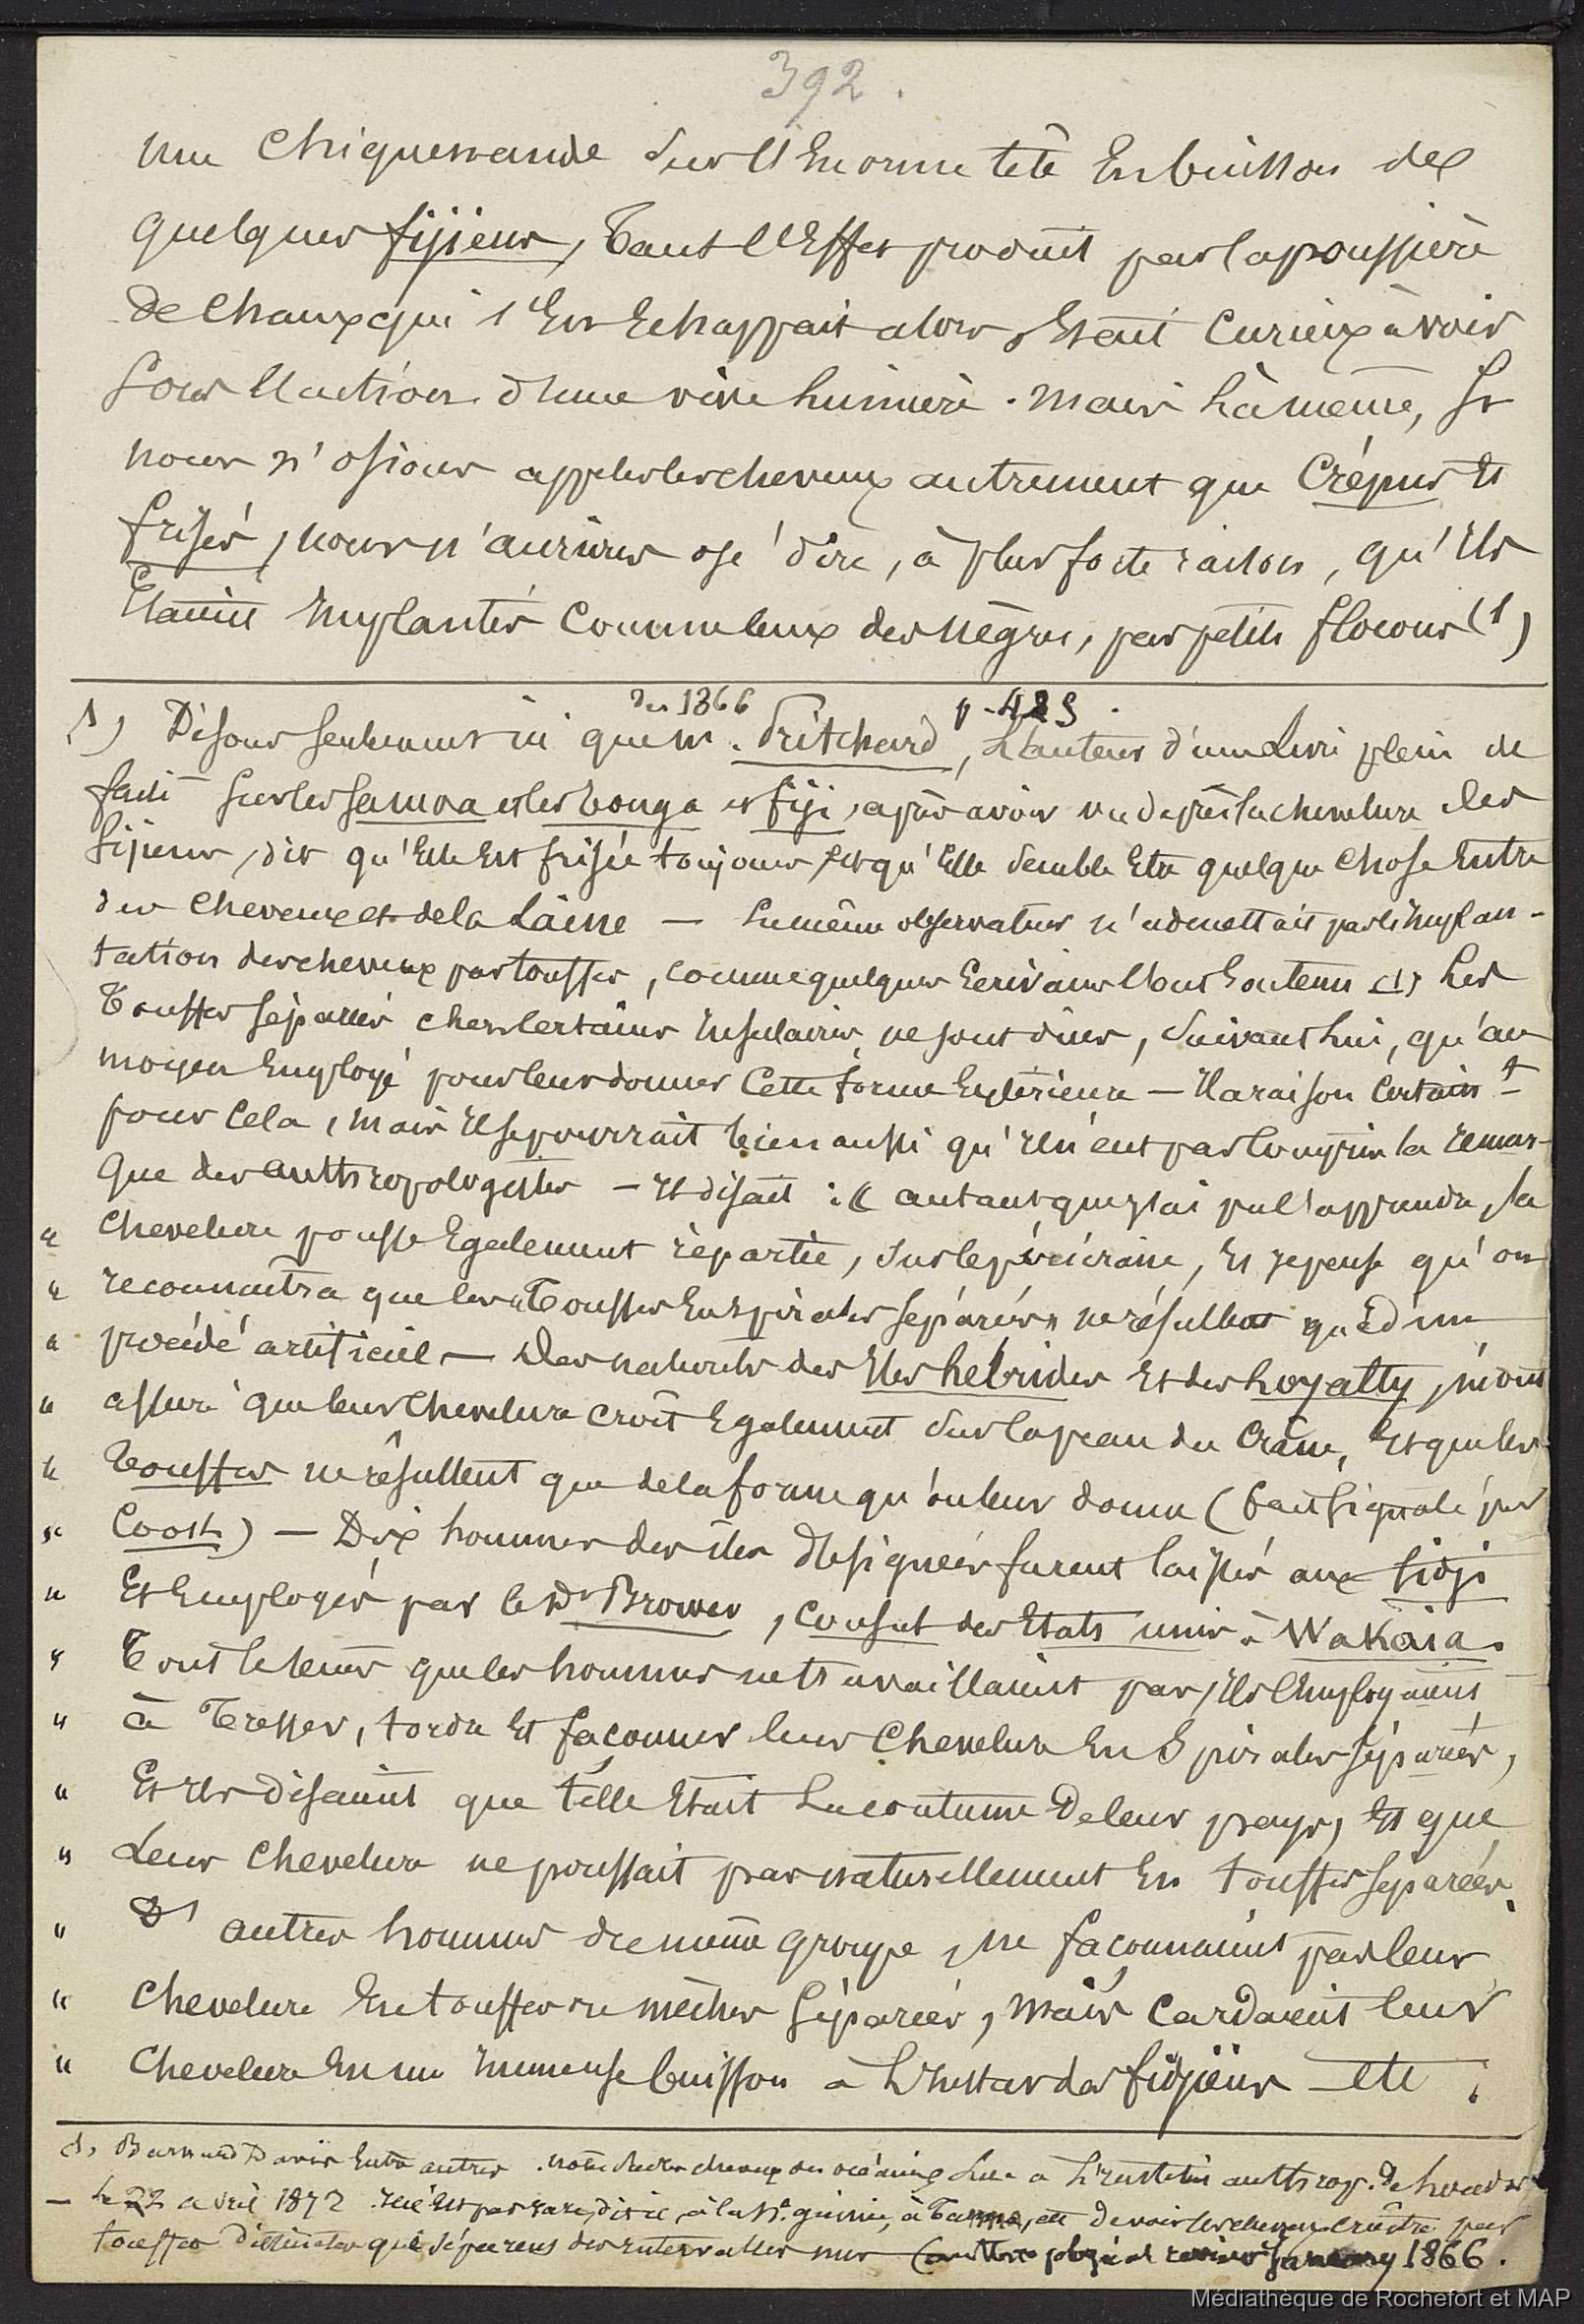 392.
une chiquenaude sur l'Enorme tête En buisson de
quelques fijiens, tant l'Effet produit par la poussière
de chaux qui s'En Echappait alors, Etait curieux à voir
sous l'action d'une vive lumière. Mais là même, Si
nous n'osions appeler les cheveux autrement que Crépus Et
frisés, nous n'aurions osé dire, à plus forte raison, qu'Ils
Etaient Implantés comme ceux des nègres, par petits flocons (1)
1) Disons seulement ici que M. Pritchard, L'auteur d'un Livre plein de
En 1866 p. 425.
faits sur les Samoa et les Tonga et fiji, après avoir vu de près la chevelure des
fijiens, dit qu'Elle Est frisée toujours, et qu'Elle semble Etre quelque chose Entre
des cheveux et de la Laine — Le même observateur n'admettait pas l'Implan-
tation des cheveux par touffes, comme quelques Ecrivains l'ont soutenu (1) Les
Touffes séparées chez certains Insulaires ne sont dues, suivant lui, qu'au
moyen Employé pour leur donner cette forme Extérieure — Il a raison certaint
pour cela, mais Il se pourrait bien aussi qu'Il n'eut pas compris la remar-
que des anthropologistes — Il disait : « autant que j'ai pu l'apprendre, la
« chevelure pousse Egalement répartie, sur le péricrâne, Et je pense qu'on
« reconnaitra que les « Touffes En spirales séparées » ne résultent que d'un
« procédé artificiel — Des naturels des Iles hébrides Et des Loyalty, m'ont
« assuré que leur chevelure croit Egalement sur la peau du crâne, Et que les
« Touffes ne résultent que de la forme qu'on leur donne ( signalé par
« Cook) — Dix hommes des iles désignées furent laissés aux fidji
« Et Employés par le Dr Brower, consul des Etats unis à Wakaia.
« Tout le temps que les hommes ne travaillaient pas, Ils l'Employaient
« à Tresser, tordre Et façonner leur chevelure En Spirales séparées,
« Et Ils disaient que telle Etait La coutume De leur pays, Et que
« Leur chevelure ne poussait pas naturellement En touffes séparées.
« D'autres hommes du même groupe, ne façonnaient pas leur
« chevelure En touffes ou mèches séparées, mais cardaient leur
« chevelure En un Immense buisson à L'Instar des fidjiens — etc.
1, Barnard Davis Entre autres. note sur les cheveux des océaniens Lue à L'Institut anthrop. de Londres
— Le 22 avril 1872. Il n'Est pas rare, dit-il, à la Nle guinée, à Tanna, etc De voir les cheveux croître par
touffes distinctes que séparent des Intervalles nus (anthropological review January 1866.
Médiathèque de Rochefort et MAP